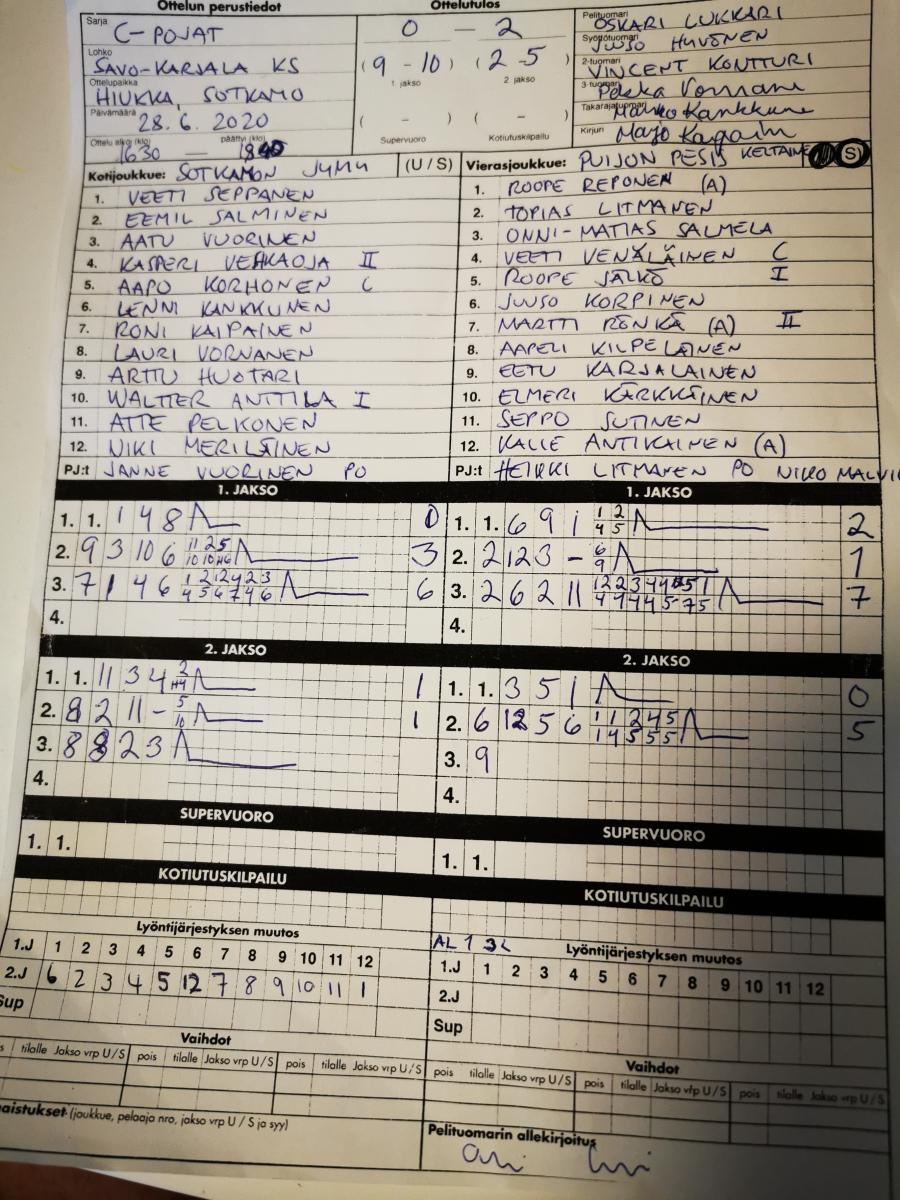 Ottelun perustiedot
Ottelutulos
Sarja
C-POJAT
0 — 2
Pelituomari
OSKARI LUKKARI
Syöttötuomari
JUUSO HUVONEN
Lohko
SAVO-KARJALA KS
(9 - 10) (2-5)
1 jakso 2. jakso
2-tuomari
VINCENT KONTTURI
3-tuomari
Ottelupaikka
HIUKKA, SOTKAMO
Takarajatuomari
Päivämäärä
28.6.2020
( – ) ( – )
Supervuoro Kotiutuskilpailu
Kirjuri
Ottelu alkoi (klo) päättyi (klo)
1630 — 1840
Kotijoukkue: SOTKAMON JYMY (U / S)
Vierasjoukkue: PUIJON PESIS KELTAINEN S)
1. VEETI SEPPÄNEN
2. EEMIL SALMINEN
3. AATU VUORINEN
4. KASPERI VEHKAOJA II
5. AAPO KORHONEN C
6. LENNI KANKKUNEN
7. RONI KAIPAINEN
8. LAURI VORNANEN
9. ARTTU HUOTARI
10. WALTTER ANTTILA I
11. ATTE PELKONEN
12. NIKI MERILÄINEN
PJ:t JANNE VUORINEN PO
1. ROOPE REPONEN (A)
2. TOPIAS LITMANEN
3. ONNI-MATIAS SALMELA
4. VEETI VENÄLÄINEN C
5. ROOPE JALKÖ I
6. JUUSO KORPINEN
7. MARTTI RÖNKÄ (A) II
8. AAPELI KILPELÄINEN
9. EETU KARJALAINEN
10. ELMERI KÄRKKÄINEN
11. SEPPO SUTINEN
12. KALLE ANTIKAINEN (A)
PJ:t HEIKKI LITMANEN PO NIKO
1. JAKSO
1. 1. 1 4 8 0
2. 9 3 10 6 3
3. 7 1 4 6 6
4.
1. JAKSO
1. 1. 6 9 1 1 2 2
4 5
2. 2 12 3 – 6 1
9
3. 2 6 2 11 7
4.
2. JAKSO
1. 1. 11 3 4 1
2. 8 2 11 – 5 1
10
3. 8 8 2 3
4.
2. JAKSO
1. 1. 3 5 1 0
2. 6 12 5 6 1 1 2 4 5 5
1 4 5 5 5
3. 9
4.
SUPERVUORO
1. 1.
SUPERVUORO
1. 1.
KOTIUTUSKILPAILU
KOTIUTUSKILPAILU
Lyöntijärjestyksen muutos
1.J 1 2 3 4 5 6 7 8 9 10 11 12
2.J 6 2 3 4 5 12 7 8 9 10 11 1
Sup
AL 1 3L Lyöntijärjestyksen muutos
1.J 1 2 3 4 5 6 7 8 9 10 11 12
2.J
Sup
Vaihdot
tilalle Jakso vrp U / S pois tilalle Jakso vrp U / S pois tilalle Jakso vrp U / S
Vaihdot
pois tilalle Jakso vrp U / S pois tilalle Jakso vrp U / S pois tilalle Jakso vrp U / S
aistukset (joukkue, pelaaja nro, jakso vrp U / S ja syy)
Pelituomarin allekirjoitus